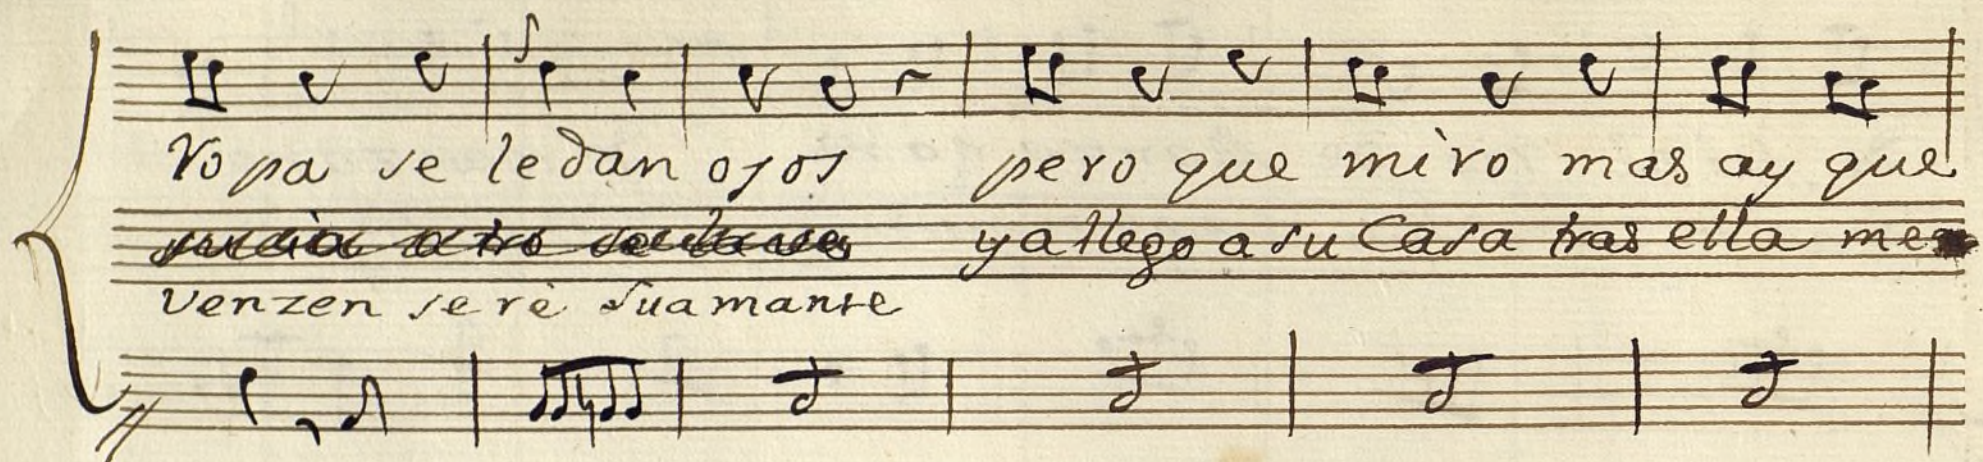 Ropa se le dan ojos pero que miro mas ay que
ya llego a su Casa tras ella me
venzen serè su amante